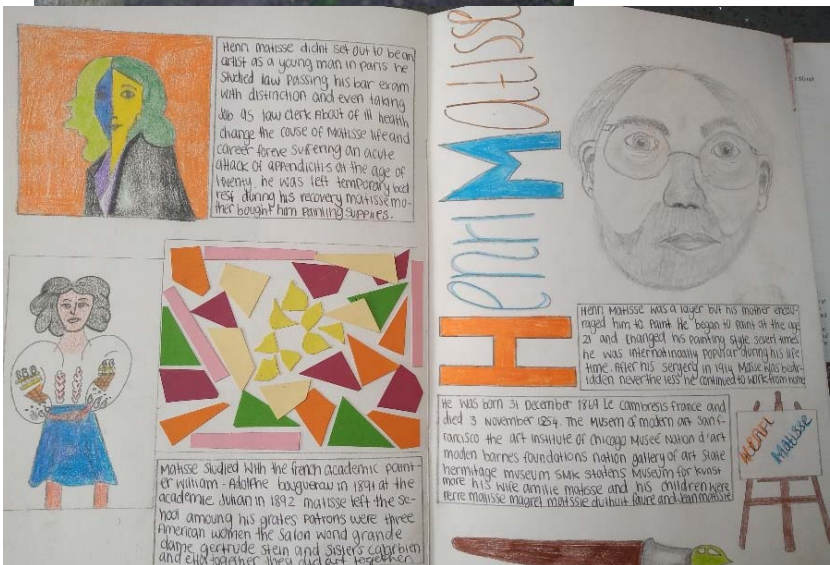 Henri matisse didnt set out to be an
artist as a young man in paris he
studied law passing his bar exam
with distinction and even taking
Job as law clerk About of ill health
change the cause of Matisse life and
career foreve suffering an acute
attack of appendicitis at the age of
twenty, he was left temporary bed
rest during his recovery matisse mo-
ther bought him painting supplies.
Matisse studied with the french academic paint-
er william-Adolphe bougueraw in 1891 at the
academie Juhan in 1892 matisse left the sc-
hool amoung his grates patrons were three
American women the salon wond grande
dame gertrude stein and sisters
and etta together they did art together
Henri Matisse
Henri Matisse was a layer but his mother encou-
raged him to paint He began to paint at the age
21 and changed his painting style severl times
he was internationally popular during his life
time. After his sergery in 1914 Matisse was bedr-
idden never the less he continued to work from home
He was born 31 December 1869 Le cambresis france and
died 3 November 1254. The Musem of modern art sanf-
rancisco the art institute of chicago Museé Nation d'art
moden barnes foundations nation gallery of art State
hermitage museum SMK Statens Museum for kunst
more his wife amilie matisse and his children were
Perre matisse magret matissie duthuit faure and Jean matisse
HENRI
Matisse